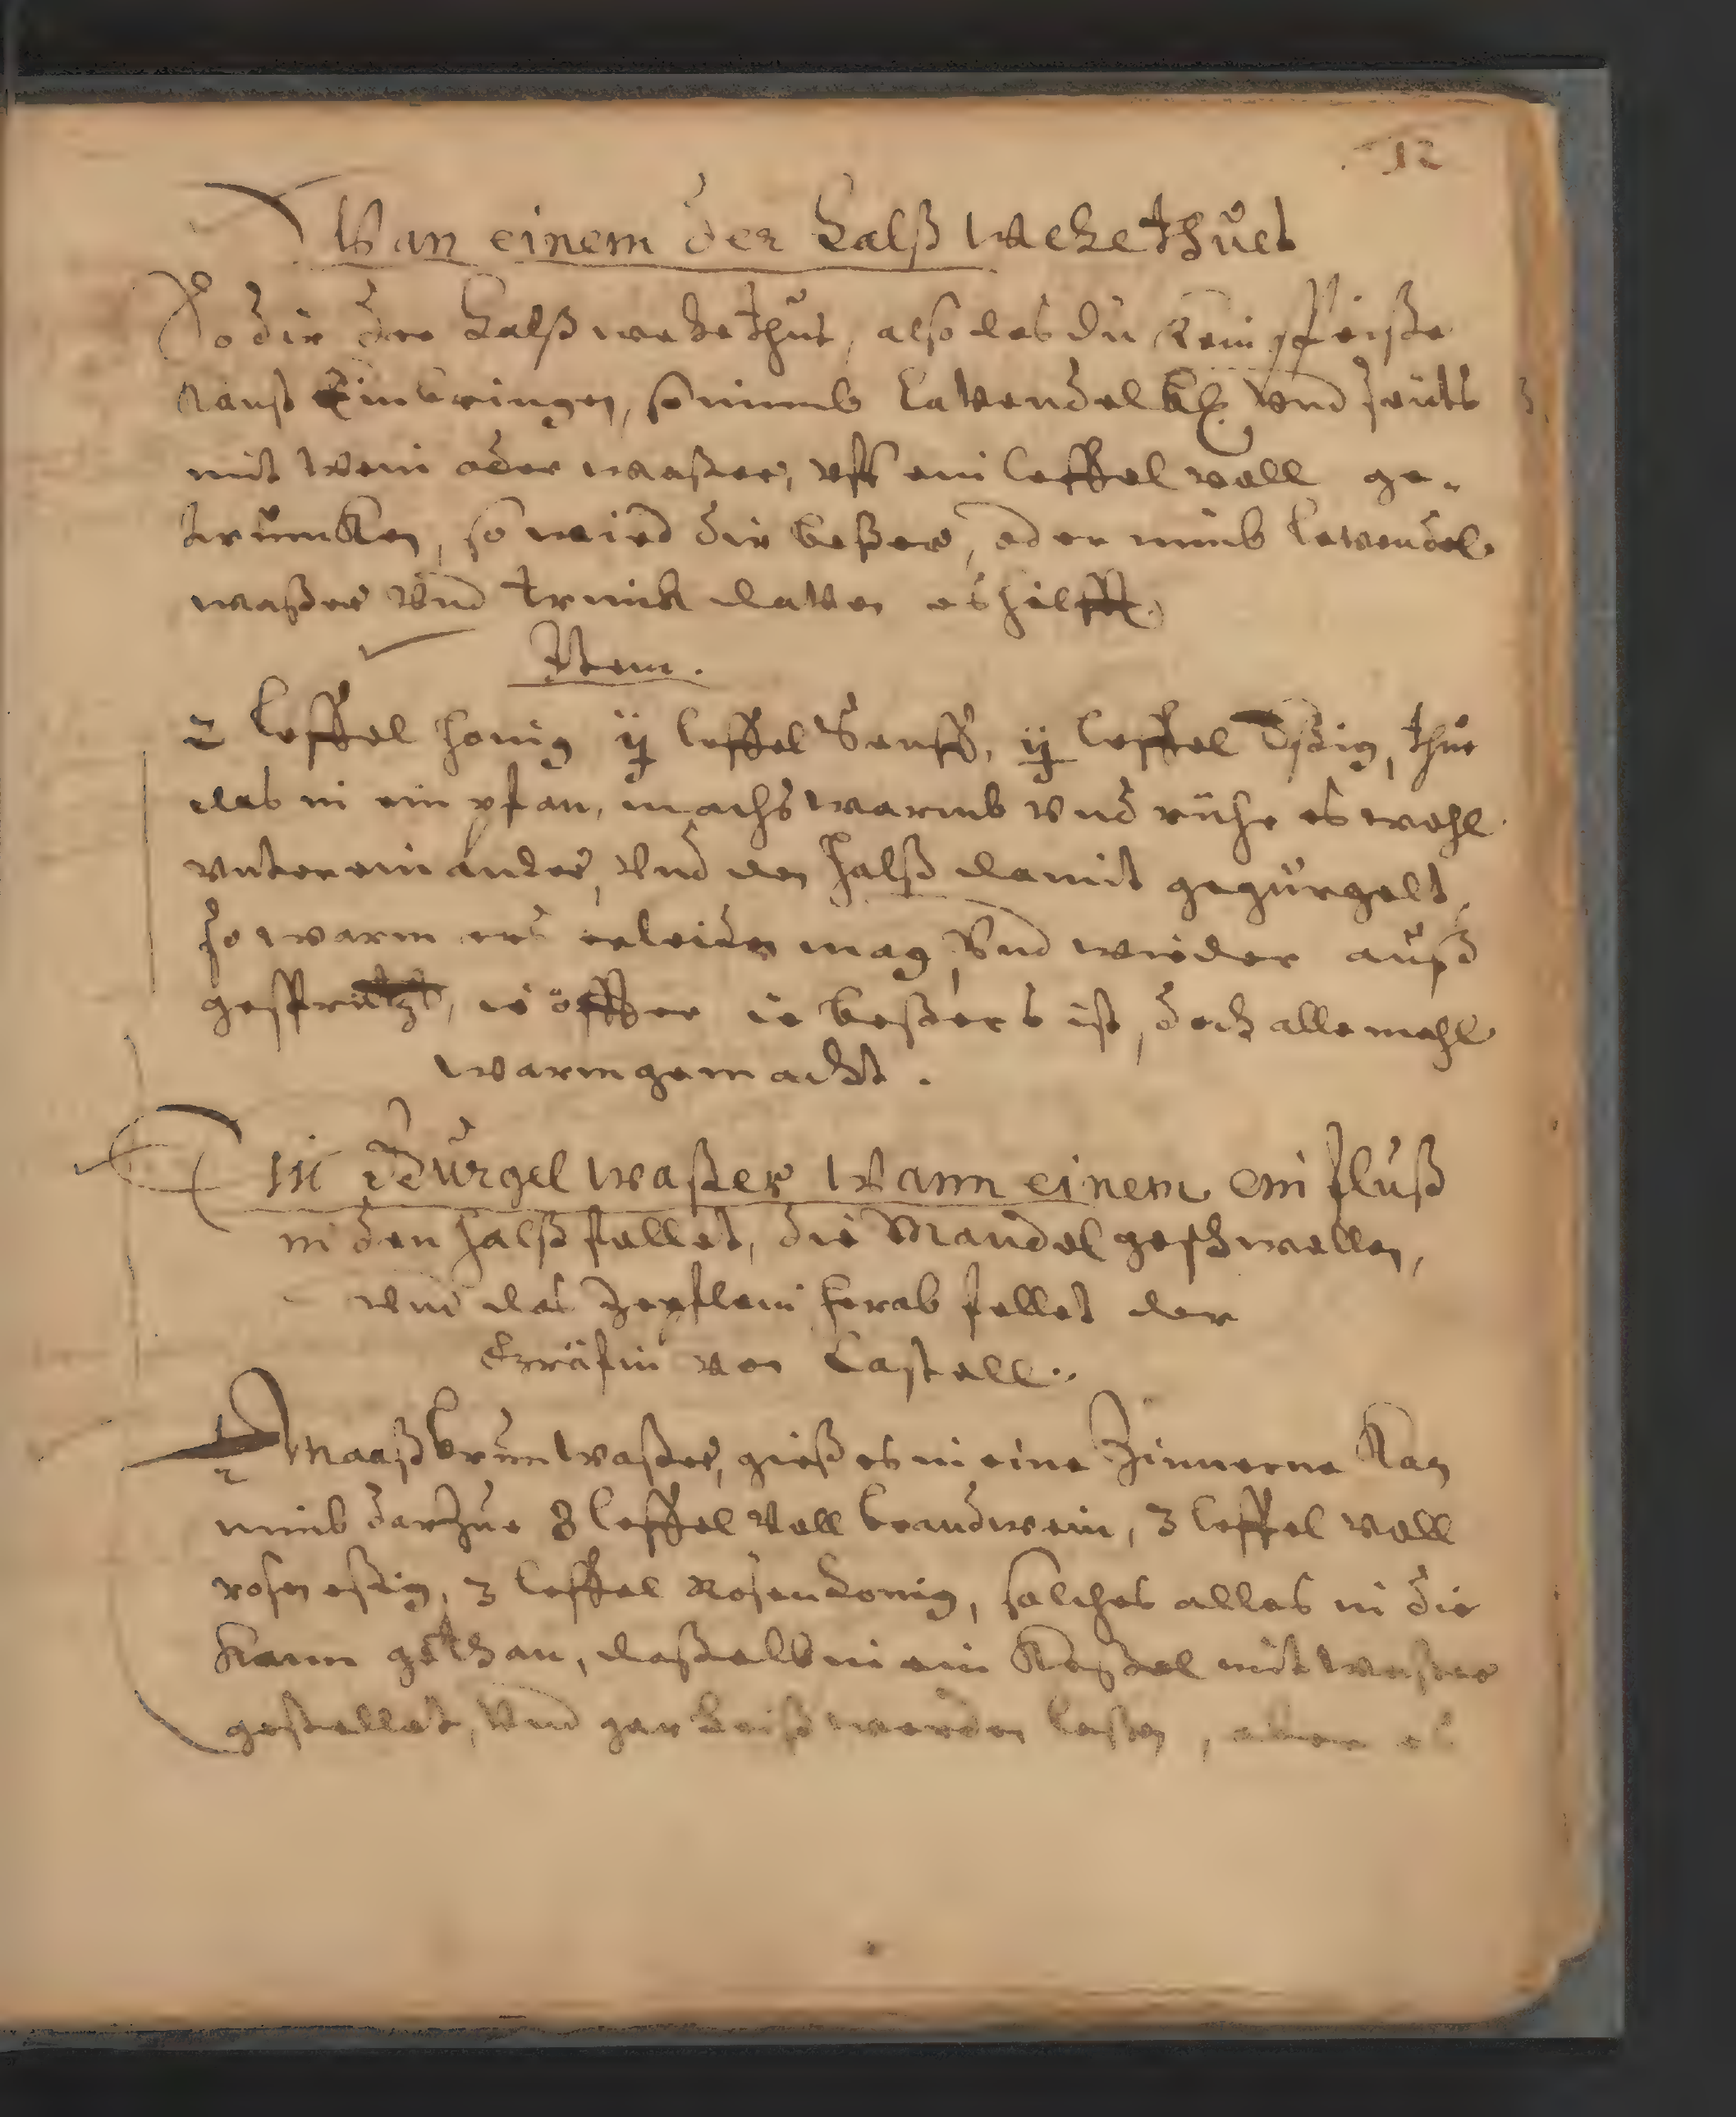 12
Wan einem der halß wehe thuet
So dir der halß wehe thut, also das du kein speiße
kanst Einbringen, so nimb lavendel und seuts
mit wein oder waßer, offt ein leffel voll ge-
truncken, so wird dir beßer, oder nimb lavendel
waßer und trinck davon es hilfft.
Item.
2 leffel honig ij leffel Senff, ij leffel Essig, thue
das in ein pfan, machs warmb und rühr es wohl
untereinander, und den halß damit gegurgelt,
so warm ers erleiden mag, Und wieder auß
gesprützt, ie öffter ie beßers ist, doch alle mahl
warm gemacht.
Ein Gurgel waßer Wann einem ein fluß
in den halß fellet, die Mandel geschwellen,
und das zepflein herab fellet der
Gräfin von Castell.
Maaß brunwaßer, gieß es in eine Zinnerne Kan
nimb darzue 8 leffel voll brandwein, 3 leffel voll
rosen essig, 3 leffel Rosenhonig, solches alles in die
kann gethan, daßelb in ein Keßel mit waßer
gestellet, Und gar heiß werden laßen, aber